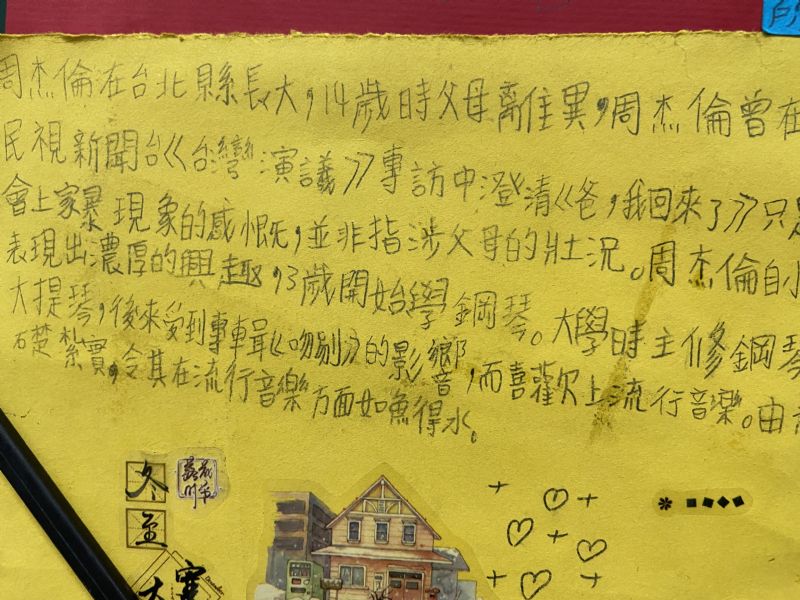 周杰倫在台北縣長大，14歲時父母離住異，周杰倫曾在
民視新聞台《台灣演議》專訪中澄清《爸，我回來了》只是
會上家暴現象的感慨，並非指涉父母的壯況。周杰倫自小
表現出濃厚的興趣，3歲開始學鋼琴。大學時主修鋼琴
大提琴，後來受到專輯《吻別》的影響，而喜歡上流行音樂。由
礎紮實，令其在流行音樂方面如魚得水。
冬
至
大
寒